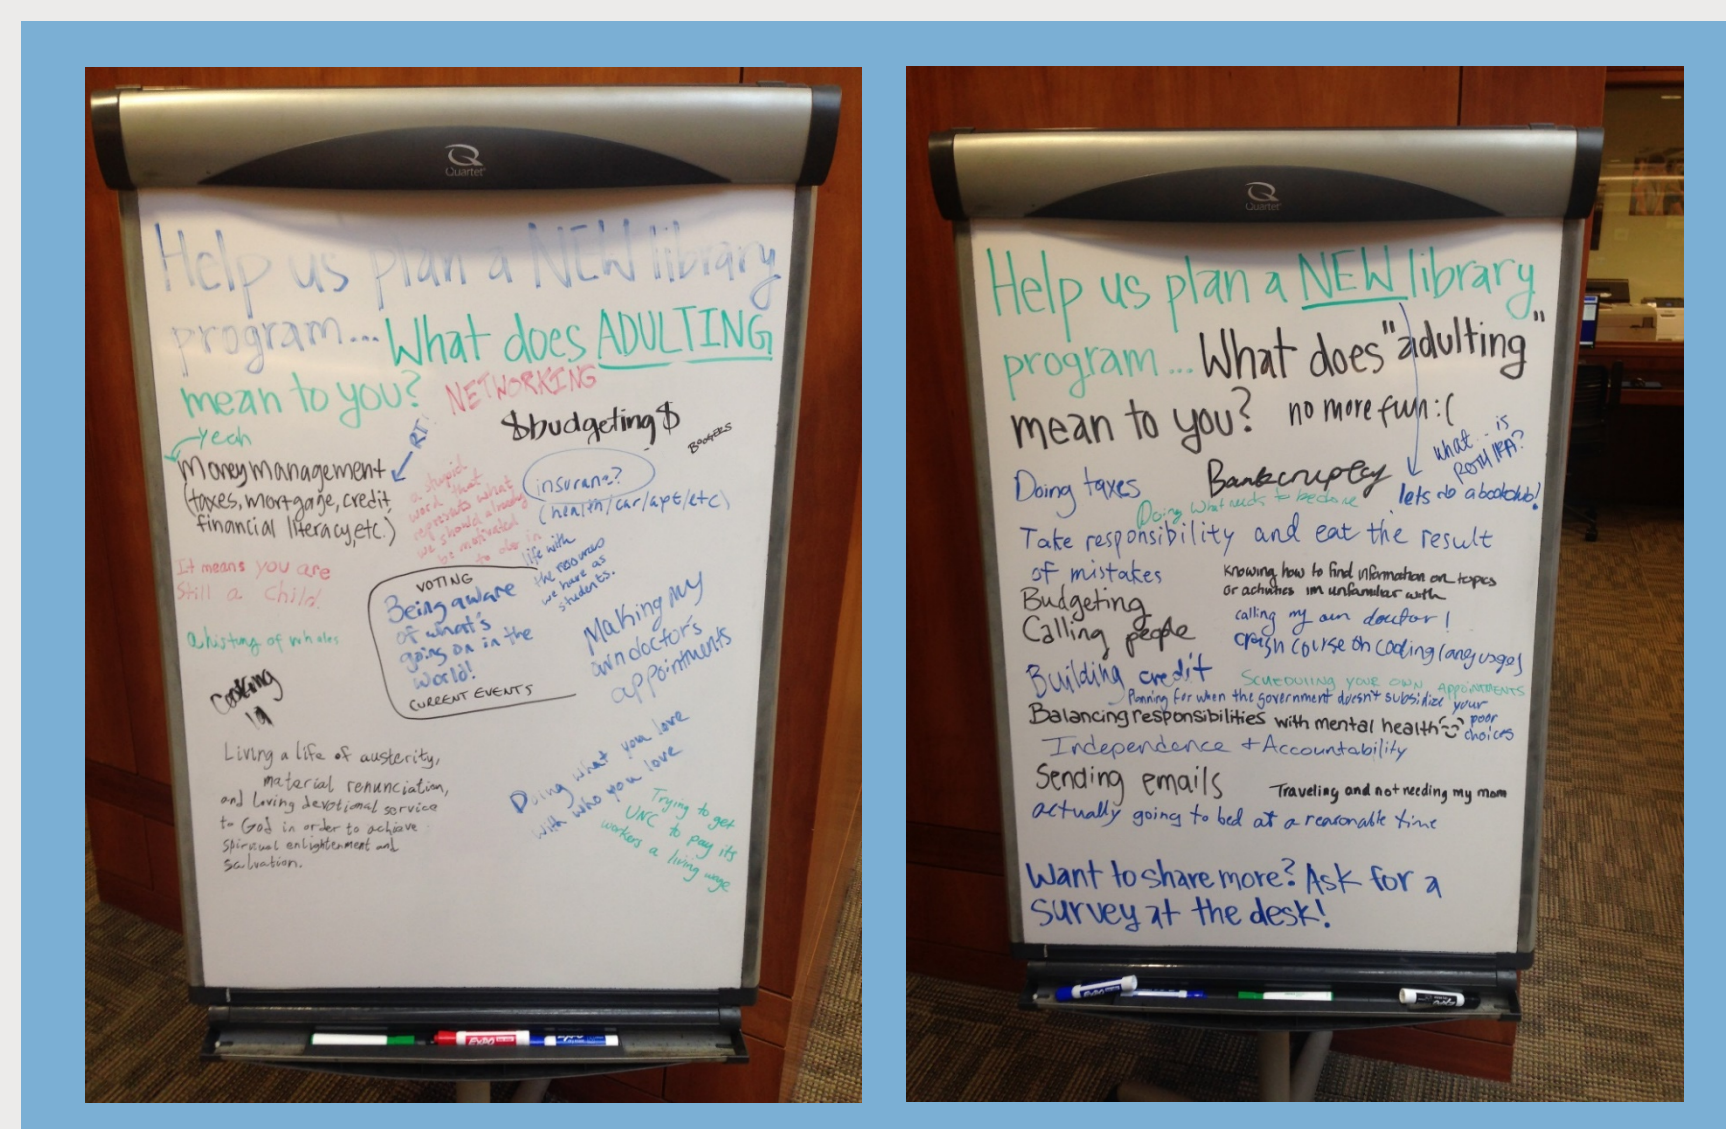 Quartet
Help us plan a NEW library
program... What does ADULTING
mean to you?
NETWORKING
Yeah
RT!
$budgeting$
BOOGERS
Money management
(taxes, mortgage, credit,
financial literacy, etc.)
a stupid
word that
represents what
we should already
be motivated
to do in
life with
the resources
we have as
students.
insurane?
(health/car/apt/etc)
It means you are
Still a child.
VOTING
Being aware
of what's
going on in the
world!
CURRENT EVENTS
Making my
own doctor's
appointments
a history of whales
Cooking
Living a life of austerity,
material renunciation,
and loving devotional service
to God in order to achieve
spiritual enlightenment and
salvation.
Doing what you love
with who you love
Trying to get
UNC to pay its
workers a living wage
EXPO
Quartet
Help us plan a NEW library
program... What does "adulting"
mean to you?
no more fun :(
what... is
ROTH IRA?
Doing taxes
Bankcruptcy
lets do a bookclub!
Doing what needs to be done
Take responsibility and eat the result
of mistakes
Knowing how to find information on topics
or activities im unfamiliar with
Budgeting
Calling people
calling my own doctor!
crash course on coding languages
Building credit
SCHEDULING YOUR OWN APPOINTMENTS
Planning for when the government doesn't subsidize your
poor
choices
Balancing responsibilities with mental health
Independence + Accountability
Sending emails
Traveling and not needing my mom
actually going to bed at a reasonable time
Want to share more? Ask for a
survey at the desk!